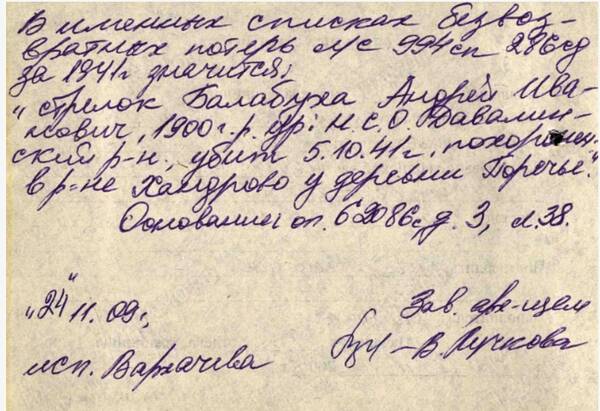 В именных списках безвоз-
вратных потерь л/с 994сп 286сд
за 1941г значится;
"стрелок Балабуха Андрей Ива-
нович, 1900г.р. ур: Н.С.О.
ский р-н, убит 5.10.41г. похоронен
в р-не Хандрово у деревни Поречье."
Основание: оп. 62086с, д. 3, л. 38.
"24" 11. 09г,
Зав. арх-щем
исп. Вархачева
В. Лучкова